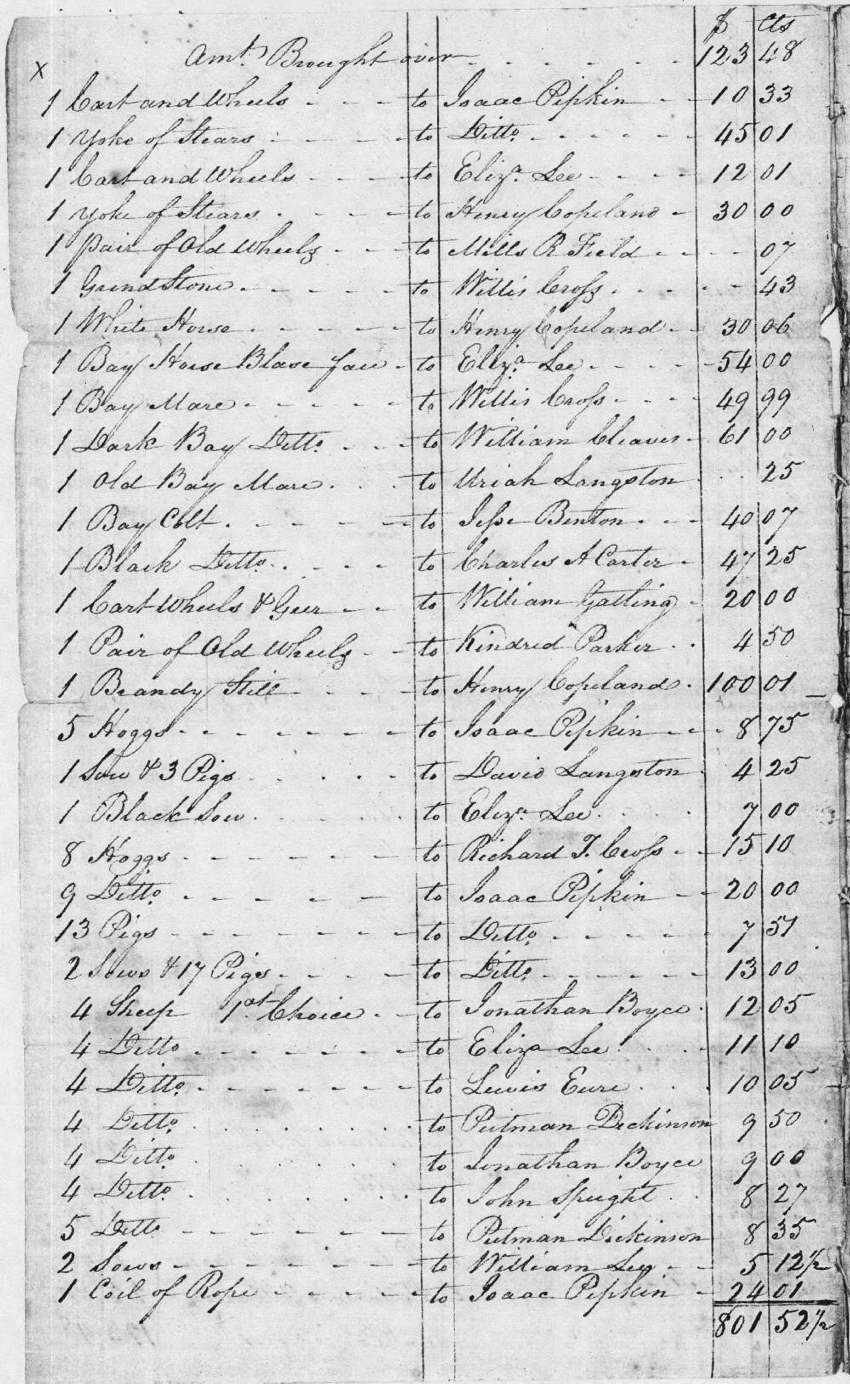 $ Cts
x Amt. Brought over 123 48
1 Cart and Wheels to Isaac Pipkin 10 33
1 Yoke of Stears to Ditto 45 01
1 Cart and Wheels to Eliza. Lee 12 01
1 Yoke of Stears to Henry Copeland 30 00
1 pair of Old Wheels to Mills R Field 07
1 Grindstone to Willis Cross 43
1 White Horse to Henry Copeland 30 06
1 Bay Horse Blase face to Eliza. Lee 54 00
1 Bay Mare to Willis Cross 49 99
1 Dark Bay Ditto to William Cleaves 61 00
1 Old Bay Mare to Uriah Langston 25
1 Bay Colt to Jesse Benton 40 07
1 Black Ditto to Charles A Carter 47 25
1 Cart Wheels & Geer to William Gatling 20 00
1 Pair of Old Wheels to Kindred Parker 4 50
1 Brandy Still to Henry Copeland 100 01
5 Hoggs to Isaac Pipkin 8 75
1 Sow & 3 Pigs to David Langston 4 25
1 Black Sow to Eliza. Lee 7 00
8 Hoggs to Richard T. Cross 15 10
9 Ditto to Isaac Pipkin 20 00
13 Pigs to Ditto 7 51
2 Sows & 17 Pigs to Ditto 13 00
4 Sheep 1st Choice to Jonathan Boyce 12 05
4 Ditto to Eliza Lee 11 10
4 Ditto to Lewis Eure 10 05
4 Ditto to Putman Dickinson 9 50
4 Ditto to Jonathan Boyce 9 00
4 Ditto to John Speight 8 27
5 Ditto to Putman Dickinson 8 35
2 Sows to William Ley 5 12½
1 Coil of Rope to Isaac Pipkin 24 01
801 52½